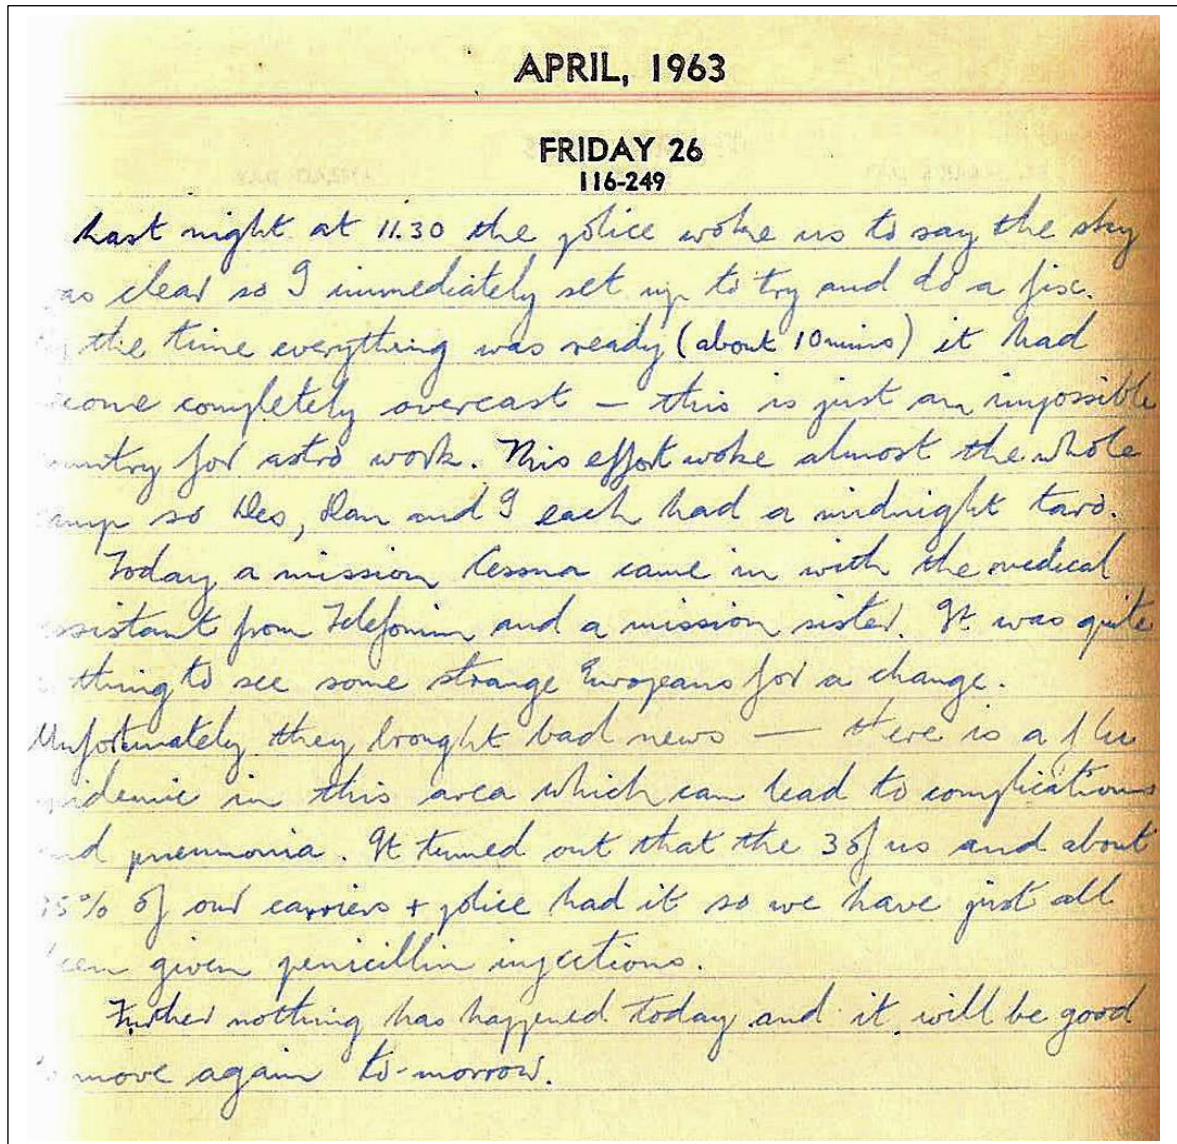 APRIL, 1963
FRIDAY 26
116-249
Last night at 11.30 the police woke us to say the sky
as clear so I immediately set up to try and do a fix.
the time everything was ready (about 10 mins) it had
come completely overcast — this is just an impossible
untry for astro work. This effort woke almost the whole
amp so Des, Dan and I each had a midnight taro.
Today a mission Cessna came in with the medical
ssistant from Telefomin and a mission sister. It was quite
thing to see some strange Europeans for a change.
Unfortunately they brought bad news — there is a flu
pidemic in this area which can lead to complications
nd pneumonia. It turned out that the 3 of us and about
5% of our carriers + police had it so we have just all
een given penicillin injections.
Further nothing has happened today and it will be good
move again to-morrow.